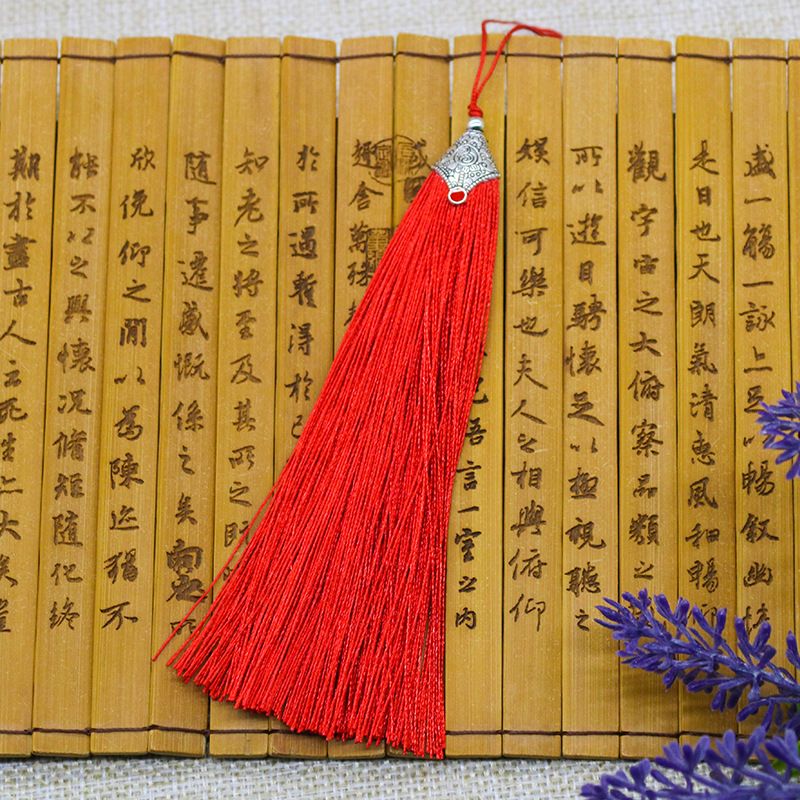 盛一觴一詠亦足以暢叙幽情
是日也天朗氣清惠風和暢仰
觀宇宙之大俯察品類之
所以遊目騁懷足以極視聽之
娛信可樂也夫人之相與俯仰
悟言一室之内
趣舍萬殊
於所遇暫得於己
知老之將至及其所之既
隨事遷感慨係之矣向之
欣俛仰之閒以為陳迹猶不
能不以之興懷況脩短隨化終
期於盡古人云死生亦大矣豈